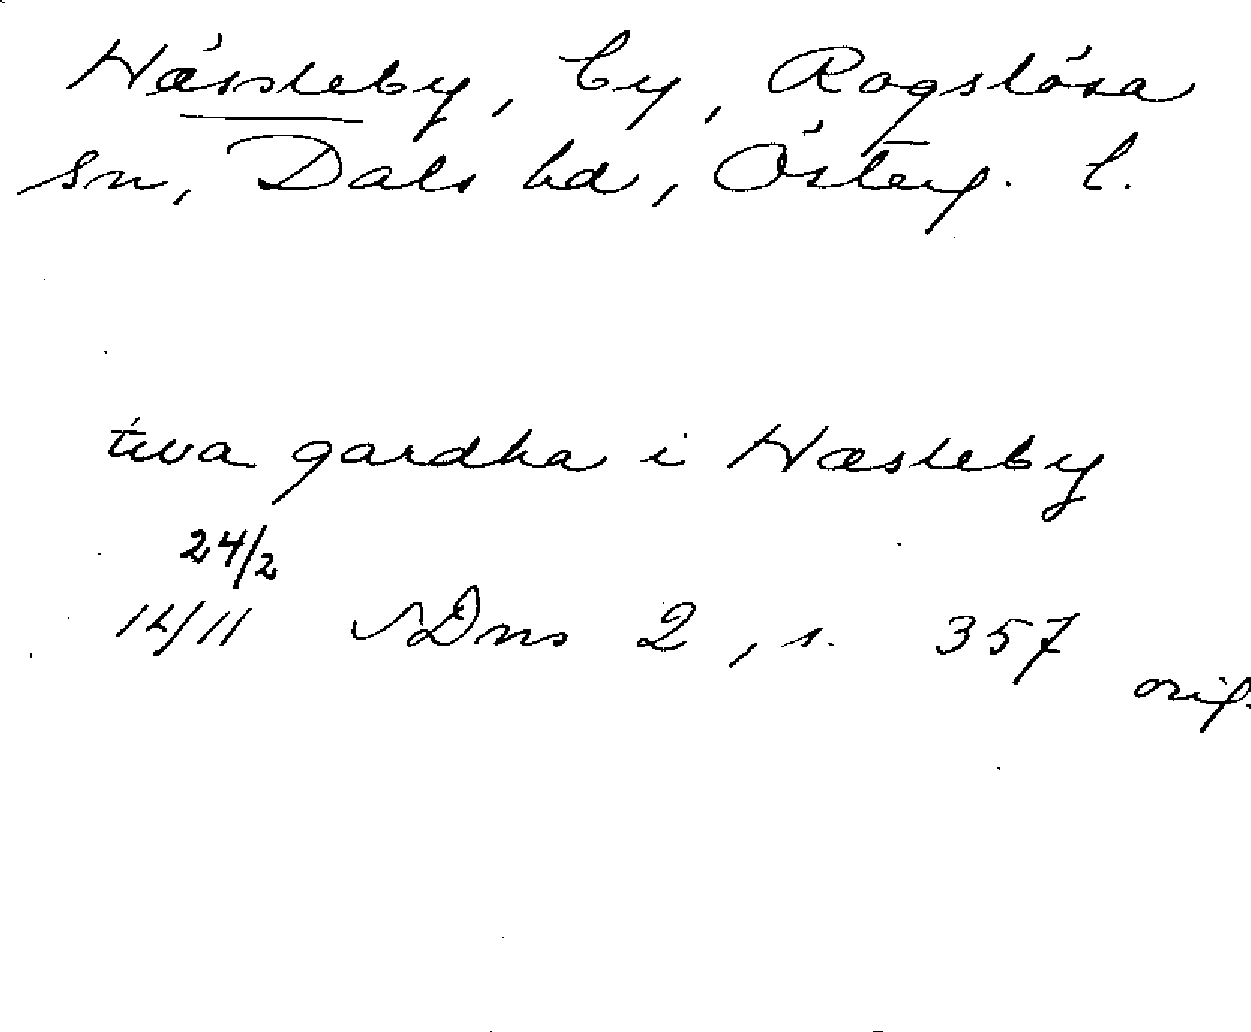 Hässleby, by, Rogslösa
sn, Dals hd, Österg. l.
twa gardha i Hæsleby
24/2
1411 SDns 2, s. 357
orig.